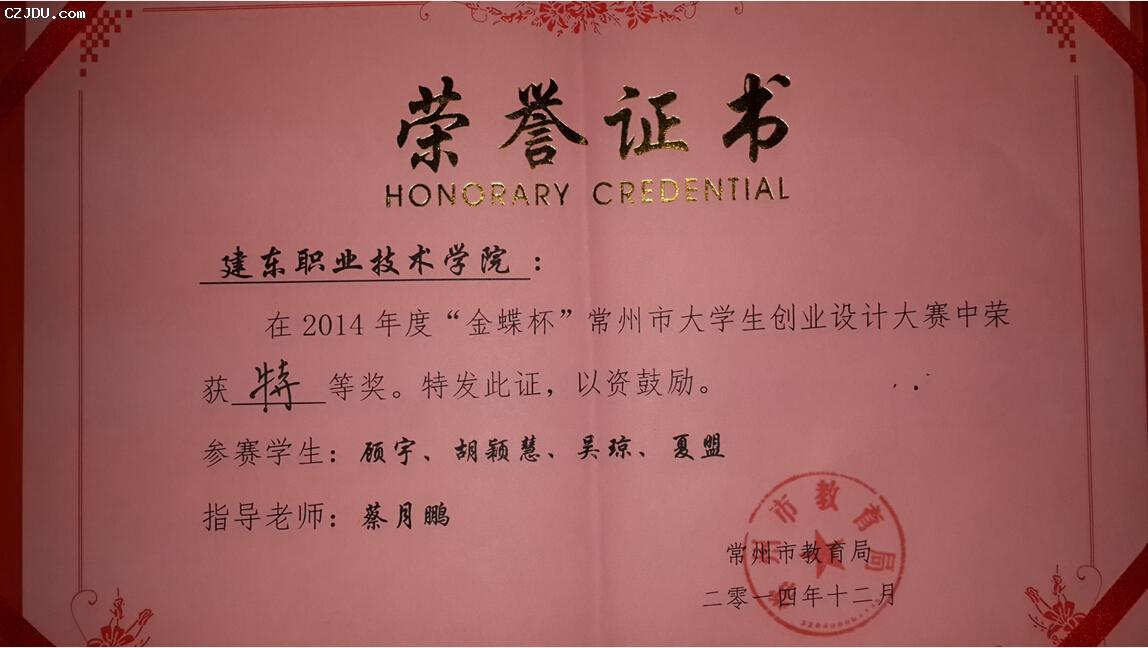 CZJDU.com
荣誉证书
HONORARY CREDENTIAL
建东职业技术学院：
在2014年度“金蝶杯”常州市大学生创业设计大赛中荣
获特等奖。特发此证，以资鼓励。
参赛学生：顾宇、胡颖慧、吴琼、夏盟
指导老师：蔡月鹏
常州市教育局
常州市教育局
二零一四年十二月